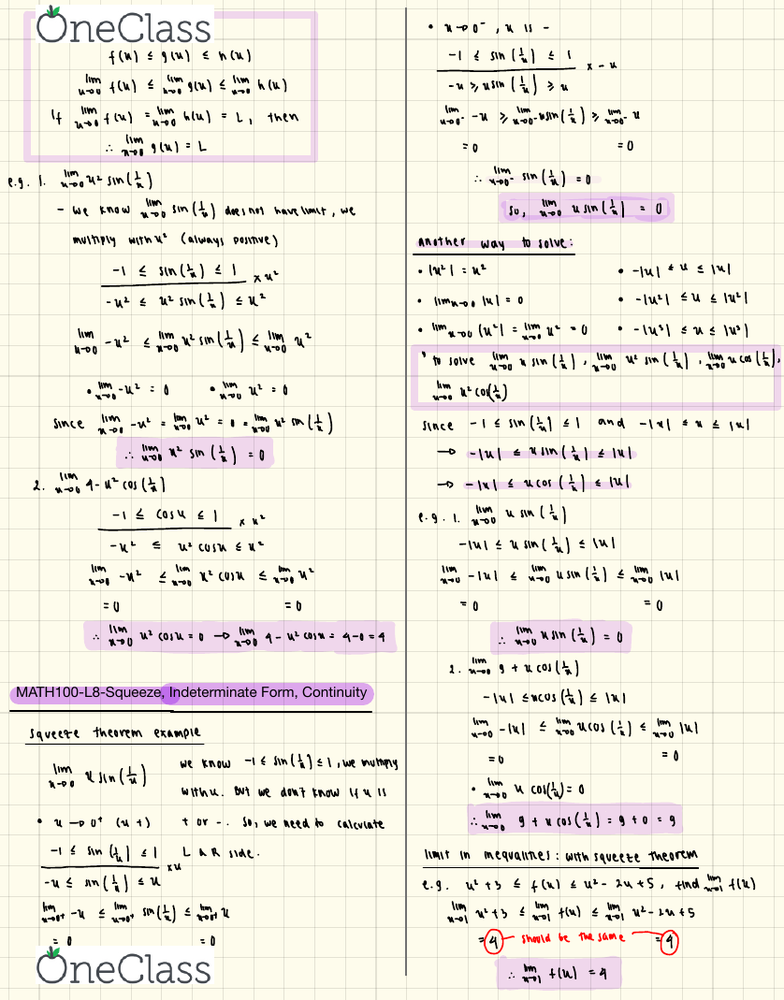 OneClass
f(x) ≤ g(x) ≤ h(x)
lim x→0 f(x) ≤ lim x→0 g(x) ≤ lim x→0 h(x)
If lim x→0 f(x) = lim x→0 h(x) = L, then
∴ lim x→0 g(x) = L
e.g. 1. lim x→0 x² sin(1/x)
- we know lim x→0 sin(1/x) does not have limit, we
multiply with x² (always positive)
-1 ≤ sin(1/x) ≤ 1 × x²
-x² ≤ x² sin(1/x) ≤ x²
lim x→0 -x² ≤ lim x→0 x² sin(1/x) ≤ lim x→0 x²
• lim x→0 -x² = 0 • lim x→0 x² = 0
since lim x→0 -x² = lim x→0 x² = 0 = lim x→0 x² sin(1/x)
∴ lim x→0 x² sin(1/x) = 0
2. lim x→0 4-x² cos(1/x)
-1 ≤ cosx ≤ 1 × x²
-x² ≤ x² cosx ≤ x²
lim x→0 -x² ≤ lim x→0 x² cosx ≤ lim x→0 x²
=0 =0
∴ lim x→0 x² cosx = 0 → lim x→0 4-x² cosx = 4-0 = 4
MATH100-L8-Squeeze, Indeterminate Form, Continuity
squeeze theorem example
lim x→0 x sin(1/x)
we know -1 ≤ sin(1/x) ≤ 1, we multiply
with x. But we don't know if x is
+ or -. So, we need to calculate
L & R side.
• x→0⁺ (x +)
-1 ≤ sin(1/x) ≤ 1 × x
-x ≤ sin(1/x) ≤ x
lim x→0⁺ -x ≤ lim x→0⁺ sin(1/x) ≤ lim x→0⁺ x
=0 =0
OneClass
• x→0⁻, x is -
-1 ≤ sin(1/x) ≤ 1 × -x
-x ≥ x sin(1/x) ≥ x
lim x→0⁻ -x ≥ lim x→0⁻ x sin(1/x) ≥ lim x→0⁻ x
=0 =0
∴ lim x→0⁻ sin(1/x) = 0
so, lim x→0 x sin(1/x) = 0
another way to solve:
• |x²| = x² • -|x| ≤ x ≤ |x|
• lim x→0 |x| = 0 • -|x²| ≤ x ≤ |x²|
• lim x→0 |x²| = lim x→0 x² = 0 • -|x³| ≤ x ≤ |x³|
* to solve lim x→0 x sin(1/x), lim x→0 x² sin(1/x), lim x→0 x cos(1/x),
lim x→0 x² cos(1/x)
since -1 ≤ sin(1/x) ≤ 1 and -|x| ≤ x ≤ |x|
→ -|x| ≤ x sin(1/x) ≤ |x|
→ -|x| ≤ x cos(1/x) ≤ |x|
e.g. 1. lim x→0 x sin(1/x)
-|x| ≤ x sin(1/x) ≤ |x|
lim x→0 -|x| ≤ lim x→0 x sin(1/x) ≤ lim x→0 |x|
=0 =0
∴ lim x→0 x sin(1/x) = 0
2. lim x→0 9 + x cos(1/x)
-|x| ≤ x cos(1/x) ≤ |x|
lim x→0 -|x| ≤ lim x→0 x cos(1/x) ≤ lim x→0 |x|
=0 =0
• lim x→0 x cos(1/x) = 0
∴ lim x→0 9 + x cos(1/x) = 9+0 = 9
limit in inequalities: with squeeze theorem
e.g. x²+3 ≤ f(x) ≤ x²-2x+5, find lim x→1 f(x)
lim x→1 x²+3 ≤ lim x→1 f(x) ≤ lim x→1 x²-2x+5
=4 should be the same =4
∴ lim x→1 f(x) = 4